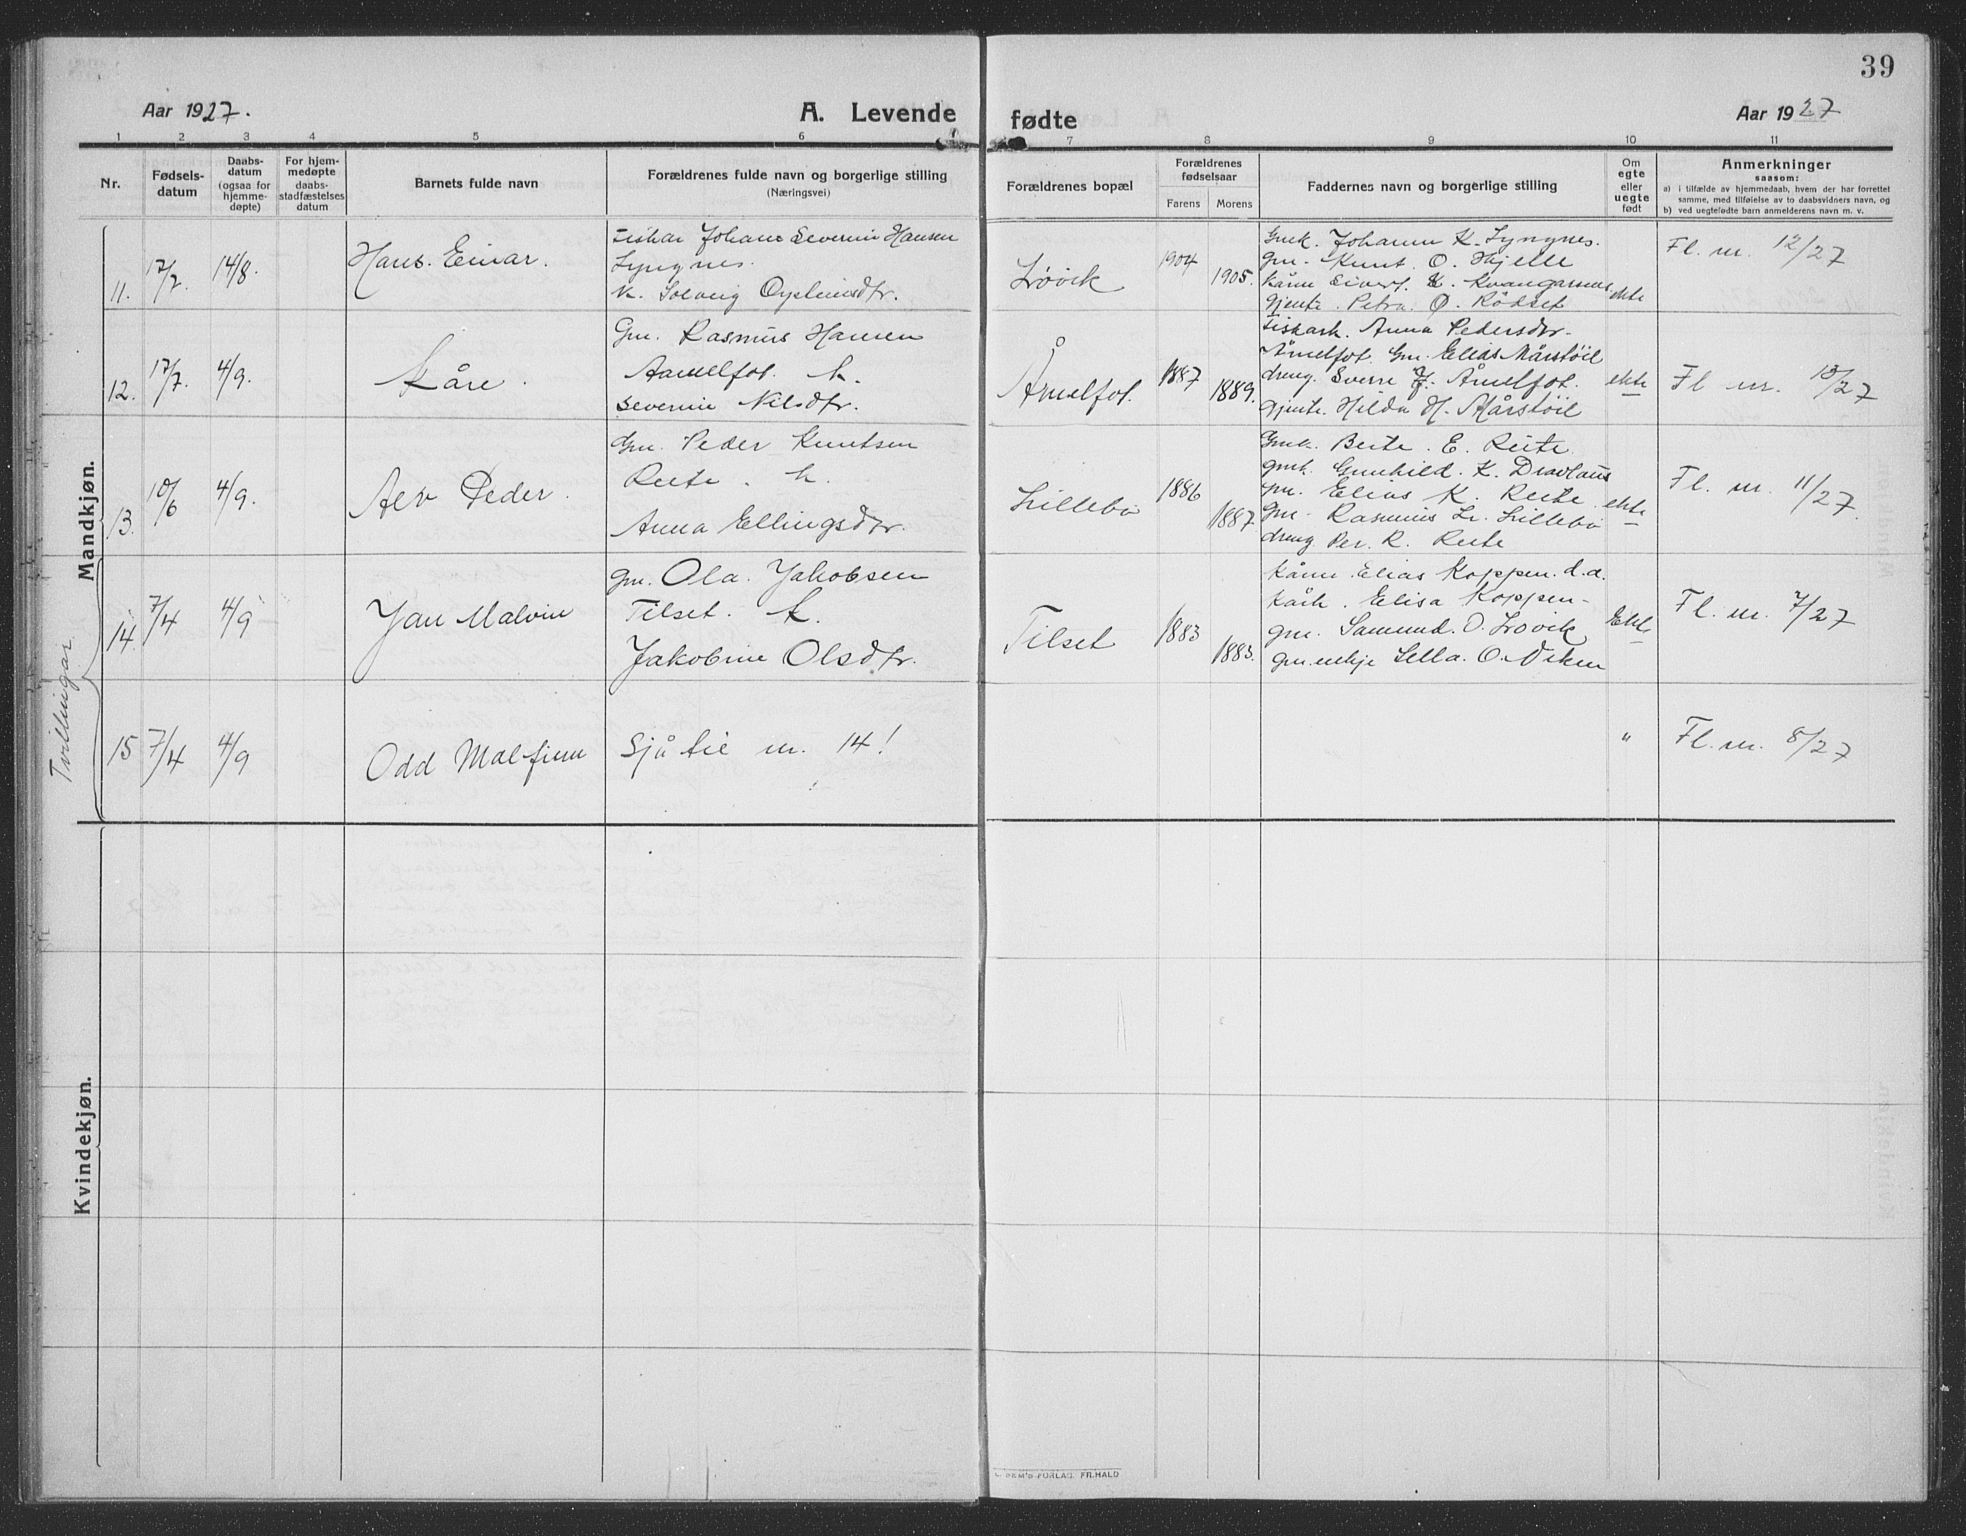 39
Aar 1927.
A. Levende
fødte
Aar 1927
1 2 3 4 5 6 7 8 9 10 11
Nr.
Fødsels-
datum
Daabs-
datum
(ogsaa for
hjemme-
døpte)
For hjem-
medøpte
daabs-
stadfæstelses
datum
Barnets fulde navn
Forældrenes fulde navn og borgerlige stilling
(Næringsvei)
Forældrenes bopæl
Forældrenes
fødselsaar
Farens Morens
Faddernes navn og borgerlige stilling
Om
egte
eller
uegte
født
Anmerkninger
saasom:
a) i tilfælde av hjemmedaab, hvem der har forrettet
samme, med tilføielse av to daabsvidners navn, og
b) ved uegtefødte barn anmelderens navn m. v.
Mandkjøn.
11. 17/7 14/8. Hans Einar.
Fiskar Johan Severin Hansen
Lyngnes.
K. Solveig
Løvik 1904 1905.
Gmk. Johanna K. Lyngnes.
gm. Knut O. Hjelle
Kårm Sivert K. Kvangarsnes
gjente. Petra O. Rødset
ekte
Fl. nr. 12/27
12. 17/7 4/9. Kåre.
Gm. Rasmus Hansen
Aamelfot. K.
Severine Nilsdtr.
Åmelfot. 1887 1889.
Fiskark. Anna Pedersdtr.
Åmelfot. Gm. Elias Mårstöil
dreng. Sverre J. Åmelfot.
gjente. Hilda H. Mårstöil
ekte
Fl nr. 13/27
13. 10/6 4/9. Alv Peder.
Gm. Peder Knutsen
Reite. K.
Anna Ellingsdtr.
Lillebø 1886 1887.
Gmk. Berte E. Reite.
gmk. Gunhild K. Dravlaus
gm. Elias K. Reite
Gm. Rasmus L. Lillebø
dreng Per R. Reite
ekte
Fl. nr. 11/27.
Tvillingar
14. 7/4 4/9 Jan Malvin
gm. Ola Jakobsen
Tilset. K.
Jakobine Olsdtr.
Tilset 1883 1883.
Kårm. Elias Koppen. d.a.
Kårk. Elisa Koppen
gm. Samund O. Løvik
gm.enkje Sella O. Viken
Ekte
Fl. nr. 7/27
15 7/4 4/9 Odd Malfinn
Sjå til nr. 14!
"
Fl. nr. 8/27
Kvindekjøn.
FORLAG. FR.HALD